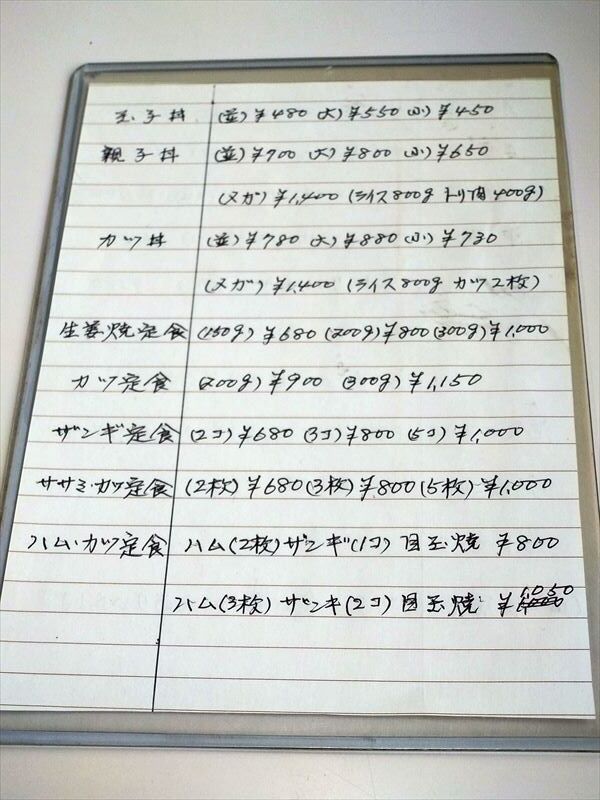 玉子丼 (並)¥480 (大)¥550 (小)¥450
親子丼 (並)¥700 (大)¥800 (小)¥650
(メガ)¥1,400 (ライス800g トリ肉400g)
カツ丼 (並)¥780 (大)¥880 (小)¥730
(メガ)¥1,400 (ライス800g カツ2枚)
生姜焼定食 (150g)¥680 (200g)¥800 (300g)¥1,000
カツ定食 (200g)¥900 (300g)¥1,150
ザンギ定食 (2コ)¥680 (3コ)¥800 (5コ)¥1,000
ササミカツ定食 (2枚)¥680 (3枚)¥800 (5枚)¥1,000
ハムカツ定食 ハム(2枚) ザンギ(1コ) 目玉焼 ¥800
ハム(3枚) ザンギ(2コ) 目玉焼 ¥1,050